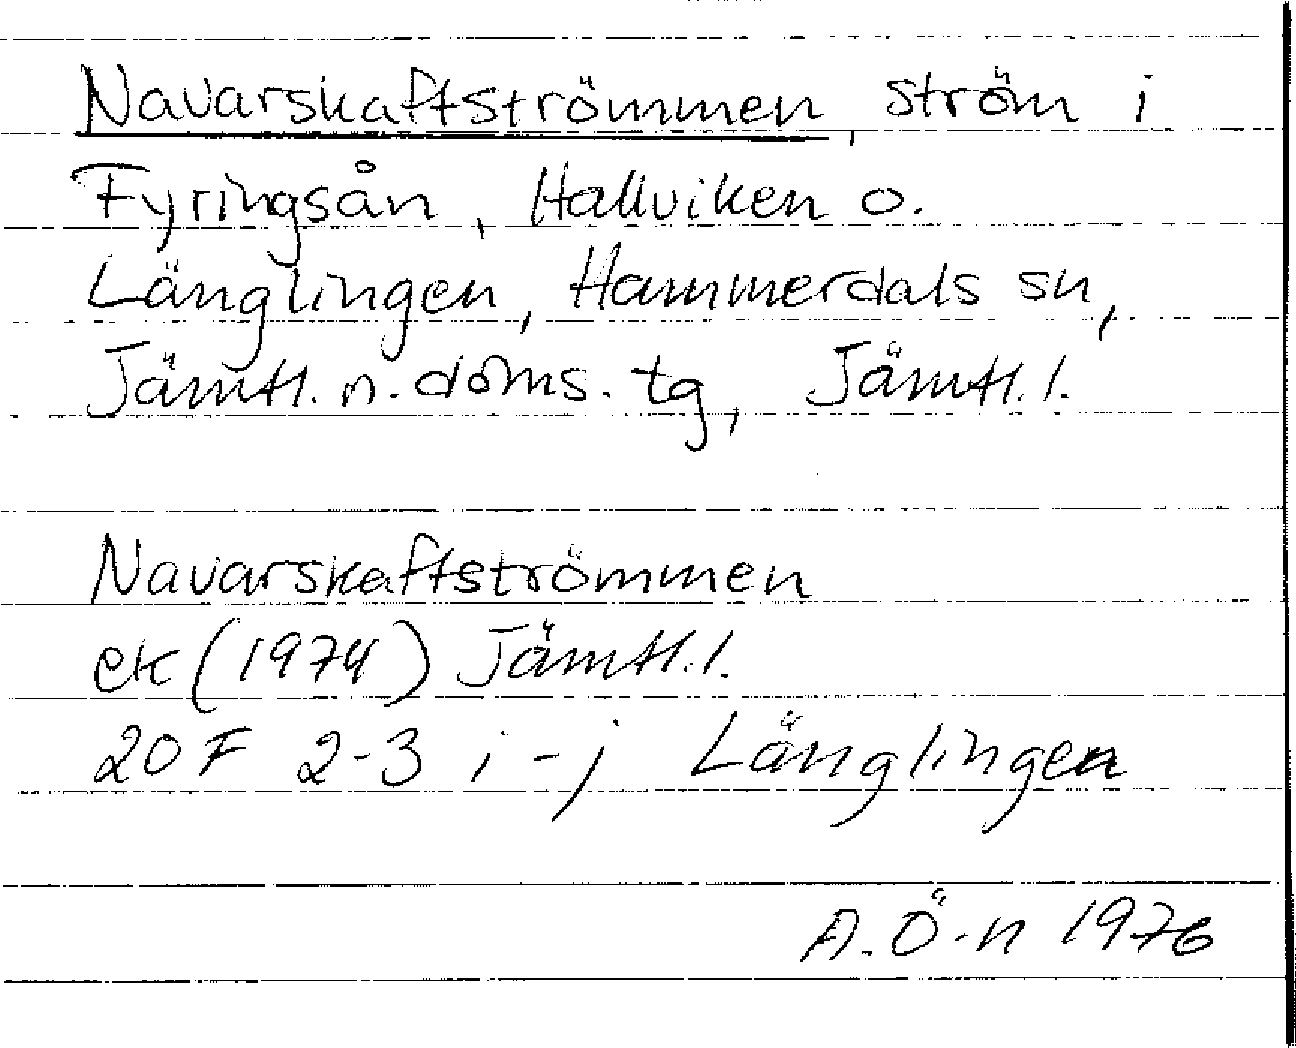 Navarskaftströmmen, ström i
Fyringsån, Hallviken o.
Länglingen, Hammerdals sn,
Jämtl. n. doms. tg, Jämtl. l.
Navarskaftströmmen
ek (1974) Jämtl. l.
20 F 2-3 i-j Länglingen
A. Ö-n 1976